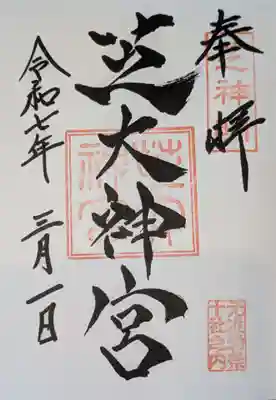 奉拝
芝大神宮
令和七年
三月一日